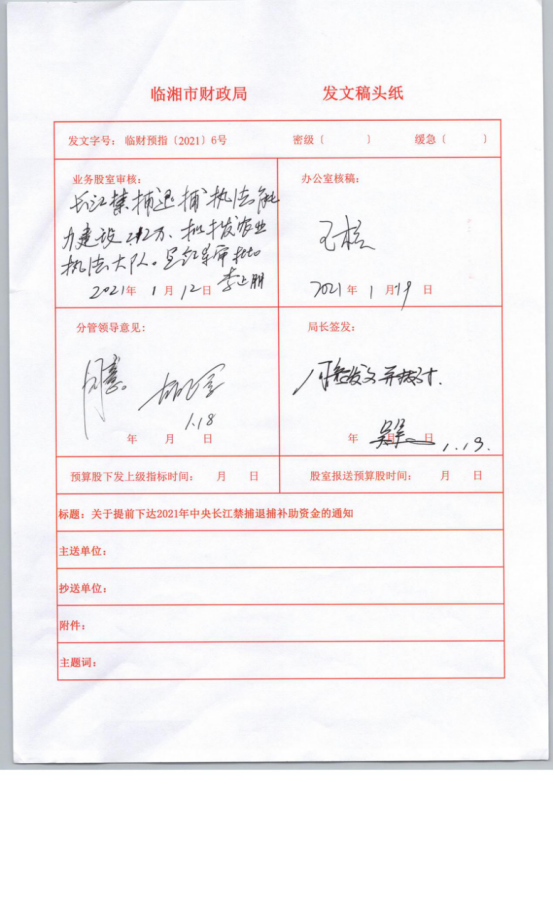 临湘市财政局 发文稿头纸
发文字号：临财预指〔2021〕6号 密级（ ） 缓急（ ）
业务股室审核：
长江禁捕退捕执法能
力建设242万、拟拨发农业
执法大队。呈領导审批。
2021年 1月12日
办公室核稿：
已核
2021年 1月19日
分管领导意见：
同意。
1.18
年 月 日
局长签发：
年 月 日 1.19.
预算股下发上级指标时间： 月 日
股室报送预算股时间： 月 日
标题：关于提前下达2021年中央长江禁捕退捕补助资金的通知
主送单位：
抄送单位：
附件：
主题词：